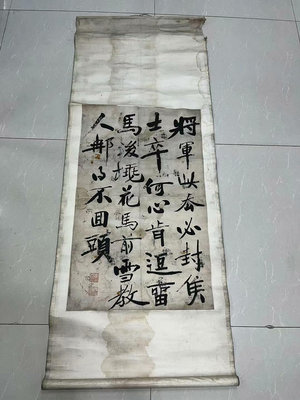 將軍此去必封侯
士卒何心肯逗留
馬後桃花馬前雪教
人那得不回頭